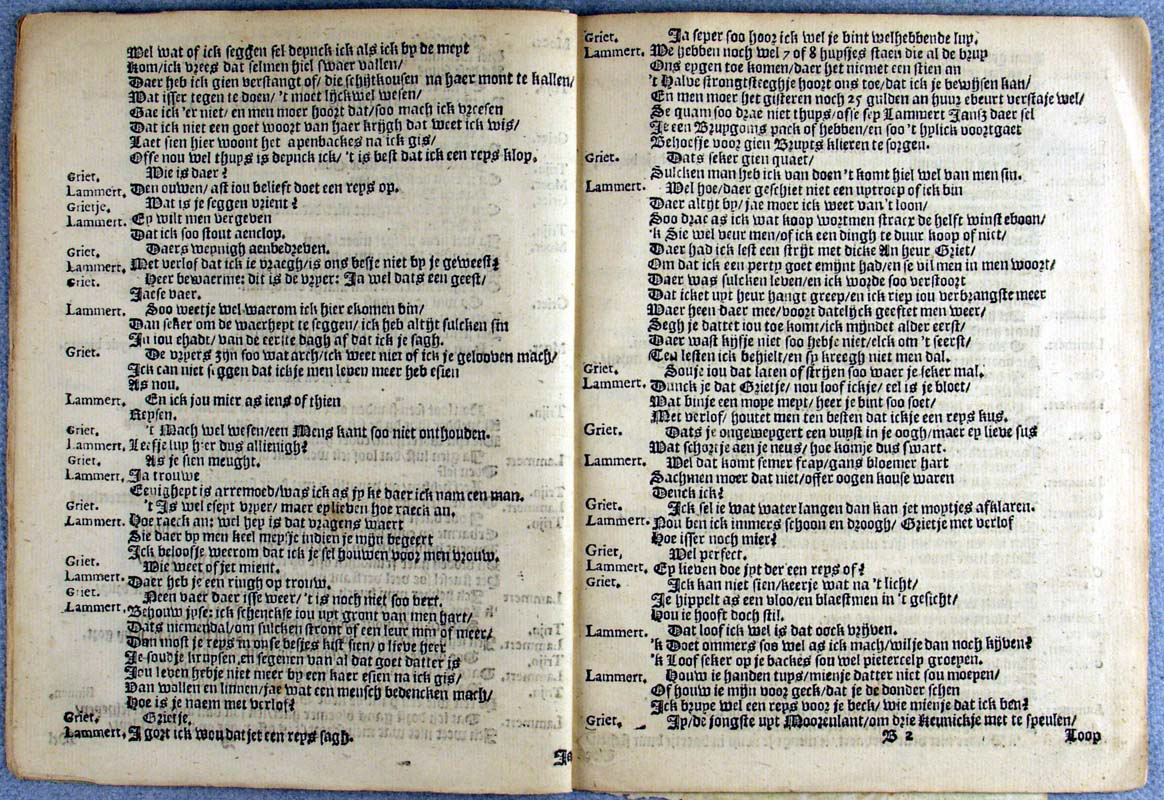 Wel wat of ick seggen sel denck ick als ick by de meyt
Kom/ick vrees dat selmen hiel swaer vallen/
Daer heb ick gien verstangt of/ die schijtkousen na haer mont te kallen/
Wat isser tegen te doen/ 't moet lijckwel wesen/
Gae ick 'er niet/ en men moer hoort dat/soo mach ick vreesen
Dat ick niet een goet woort van haer krijgh dat weet ick wis/
Laet sien hier woont het apenbackes na ick gis/
Offe nou wel thuys is denck ick/ 't is best dat ick een reys klop.
Griet. Wie is daer?
Lammert. Den ouwen/ ast iou belieft doet een reys op.
Grietje. Wat is je seggen vrient?
Lammert. Ey wilt men vergeven
Dat ick soo stout aenclop.
Griet. Daers weynigh aenbedreven.
Lammert. Met verlof dat ick ie vraegh/is ons besje niet by je geweest?
Griet. Heer bewaerme: dit is de vryer: Ja wel dats een geest/
Jaese vaer.
Lammert. Soo weetje wel waerom ick hier ekomen bin/
Dan seker om de waerheyt te seggen/ ick heb altijt sulcken sin
In iou ehadt/ van de eerste dagh af dat ick je sagh.
Griet. De vryers zijn soo wat arch/ick weet niet of ick je gelooven mach/
Ick can niet seggen dat ickje men leven meer heb esien
As nou.
Lammert. En ick jou mier as iens of thien
Reysen.
Griet. 't Mach wel wesen/een Mens kant soo niet onthouden.
Lammert. Leefje luy hier dus allienigh?
Griet. As je sien meught.
Lammert. Ja trouwe
Eenigheyt is arremoed/was ick as jy ke daer ick nam een man.
Griet. 't Is wel eseyt vryer/ maer eylieven hoe raeck an.
Lammert. Hoe raeck an? wel hey is dat vragens waert
Sie daer by men keel meysje indien je mijn begeert
Ick beloofje weerom dat ick je sel houwen voor men vrouw.
Griet. Wie weet of jet mient.
Lammert. Daer heb je een ringh op trouw.
Griet. Neen vaer daer isse weer/ 't is noch niet soo vert.
Lammert. Behouw jyse: ick schenckse iou uyt gront van men hart/
Dats niemendal/om sulcken stront of een leur min of meer/
Dan most je reys in onse besjes kist sien/ o lieve heer
Je soudje kruysen/en segenen van al dat goet datter is
Jou leven hebje niet meer by een kaer esien na ick gis/
Van wollen en linnen/jae wat een mensch bedencken mach/
Hoe is je naem met verlof?
Griet. Grietje.
Lammert. J gort ick wou dat jet een reys sagh.
Ja
Griet. Ja seper soo hoor ick wel je bint welhebbende luy.
Lammert. We hebben noch wel 7 of 8 huysjes staen die al de bruy
Ons eygen toe komen/daer het niemet een stien an
't Halve strongtsteeghje hoort ons toe/dat ick je bewijsen kan/
En men moer het gusteren noch 25 gulden an huur ebeurt verstaje wel/
Se quam soo drae niet thuys/ofse sey Lammert Jansz daer sel
Je een Bruygoms pack of hebben/en soo 't hylick voortgaet
Behoefje voor gien Bruyts klieren te sorgen.
Griet. Dats seker gien quaet/
Sulcken man heb ick van doen 't komt hiel wel van men sin.
Lammert. Wel hoe/daer geschiet niet een uytroep of ick bin
Daer altijt by/ jae moer ick weet van 't loon/
Soo drae as ick wat koop wortmen stracx de helft winst eboon/
'k Sie wel veur men/of ick een dingh te duur koop of niet/
Daer had ick lest een strijt met dicke An heur Griet/
Om dat ick een perty goet emijnt had/en se vil men in men woort/
Daer was sulcken leven/en ick worde soo verstoort
Dat icket uyt heur hangt greep/en ick riep iou verbrangste meer
Waer heen daer mee/voort datelijck geeftet men weer/
Segh je dattet iou toe komt/ick mijndet alder eerst/
Daer wast kijfje niet soo hebje niet/elck om 't seerst/
Ten lesten ick behielt/en sy kreegh niet men dal.
Griet. Souje iou dat laten ofstrijen soo waer je seker mal.
Lammert. Dunck je dat Grietje/ nou loof ickje/ eel is je bloet/
Wat binje een moye meyt/ heer je bint soo soet/
Met verlof/ houtet men ten besten dat ickje een reys kus.
Griet. Dats je ongeweygert een vuyst in je oogh/maer ey lieve sus
Wat schort je aen je neus/ hoe komje dus swart.
Lammert. Wel dat komt semer fray/gans bloemer hart
Sachmen moer dat niet/offer oogen kouse waren
Denck ick?
Griet. Ick sel ie wat water langen dan kan jet moytjes afklaren.
Lammert. Nou ben ick immers schoon en droogh/ Grietje met verlof
Hoe isser noch mier?
Griet. Wel perfect.
Lammert. Ey lieven doe jyt der een reys of?
Griet. Ick kan niet sien/keerje wat na 't licht/
Je hippelt as een vloo/en blaestmen in 't gesicht/
Hou ie hooft doch stil.
Lammert. Dat loof ick wel is dat oock vrijven.
'k Doet ommers soo wel as ick mach/wil je dan noch kijven?
'k Loof seker op je backes sou wel pietercely groeyen.
Lammert. Houw ie handen tuys/mienje datter niet sou moeyen/
Of houw ie mijn voor geck/dat je de donder schen
Ick bruye wel een reys voor je beck/ wie mienje dat ick ben?
Griet. Jy/de jongste uyt Moorenlant/om drie Keunickje met te speulen/
B 2
Loop